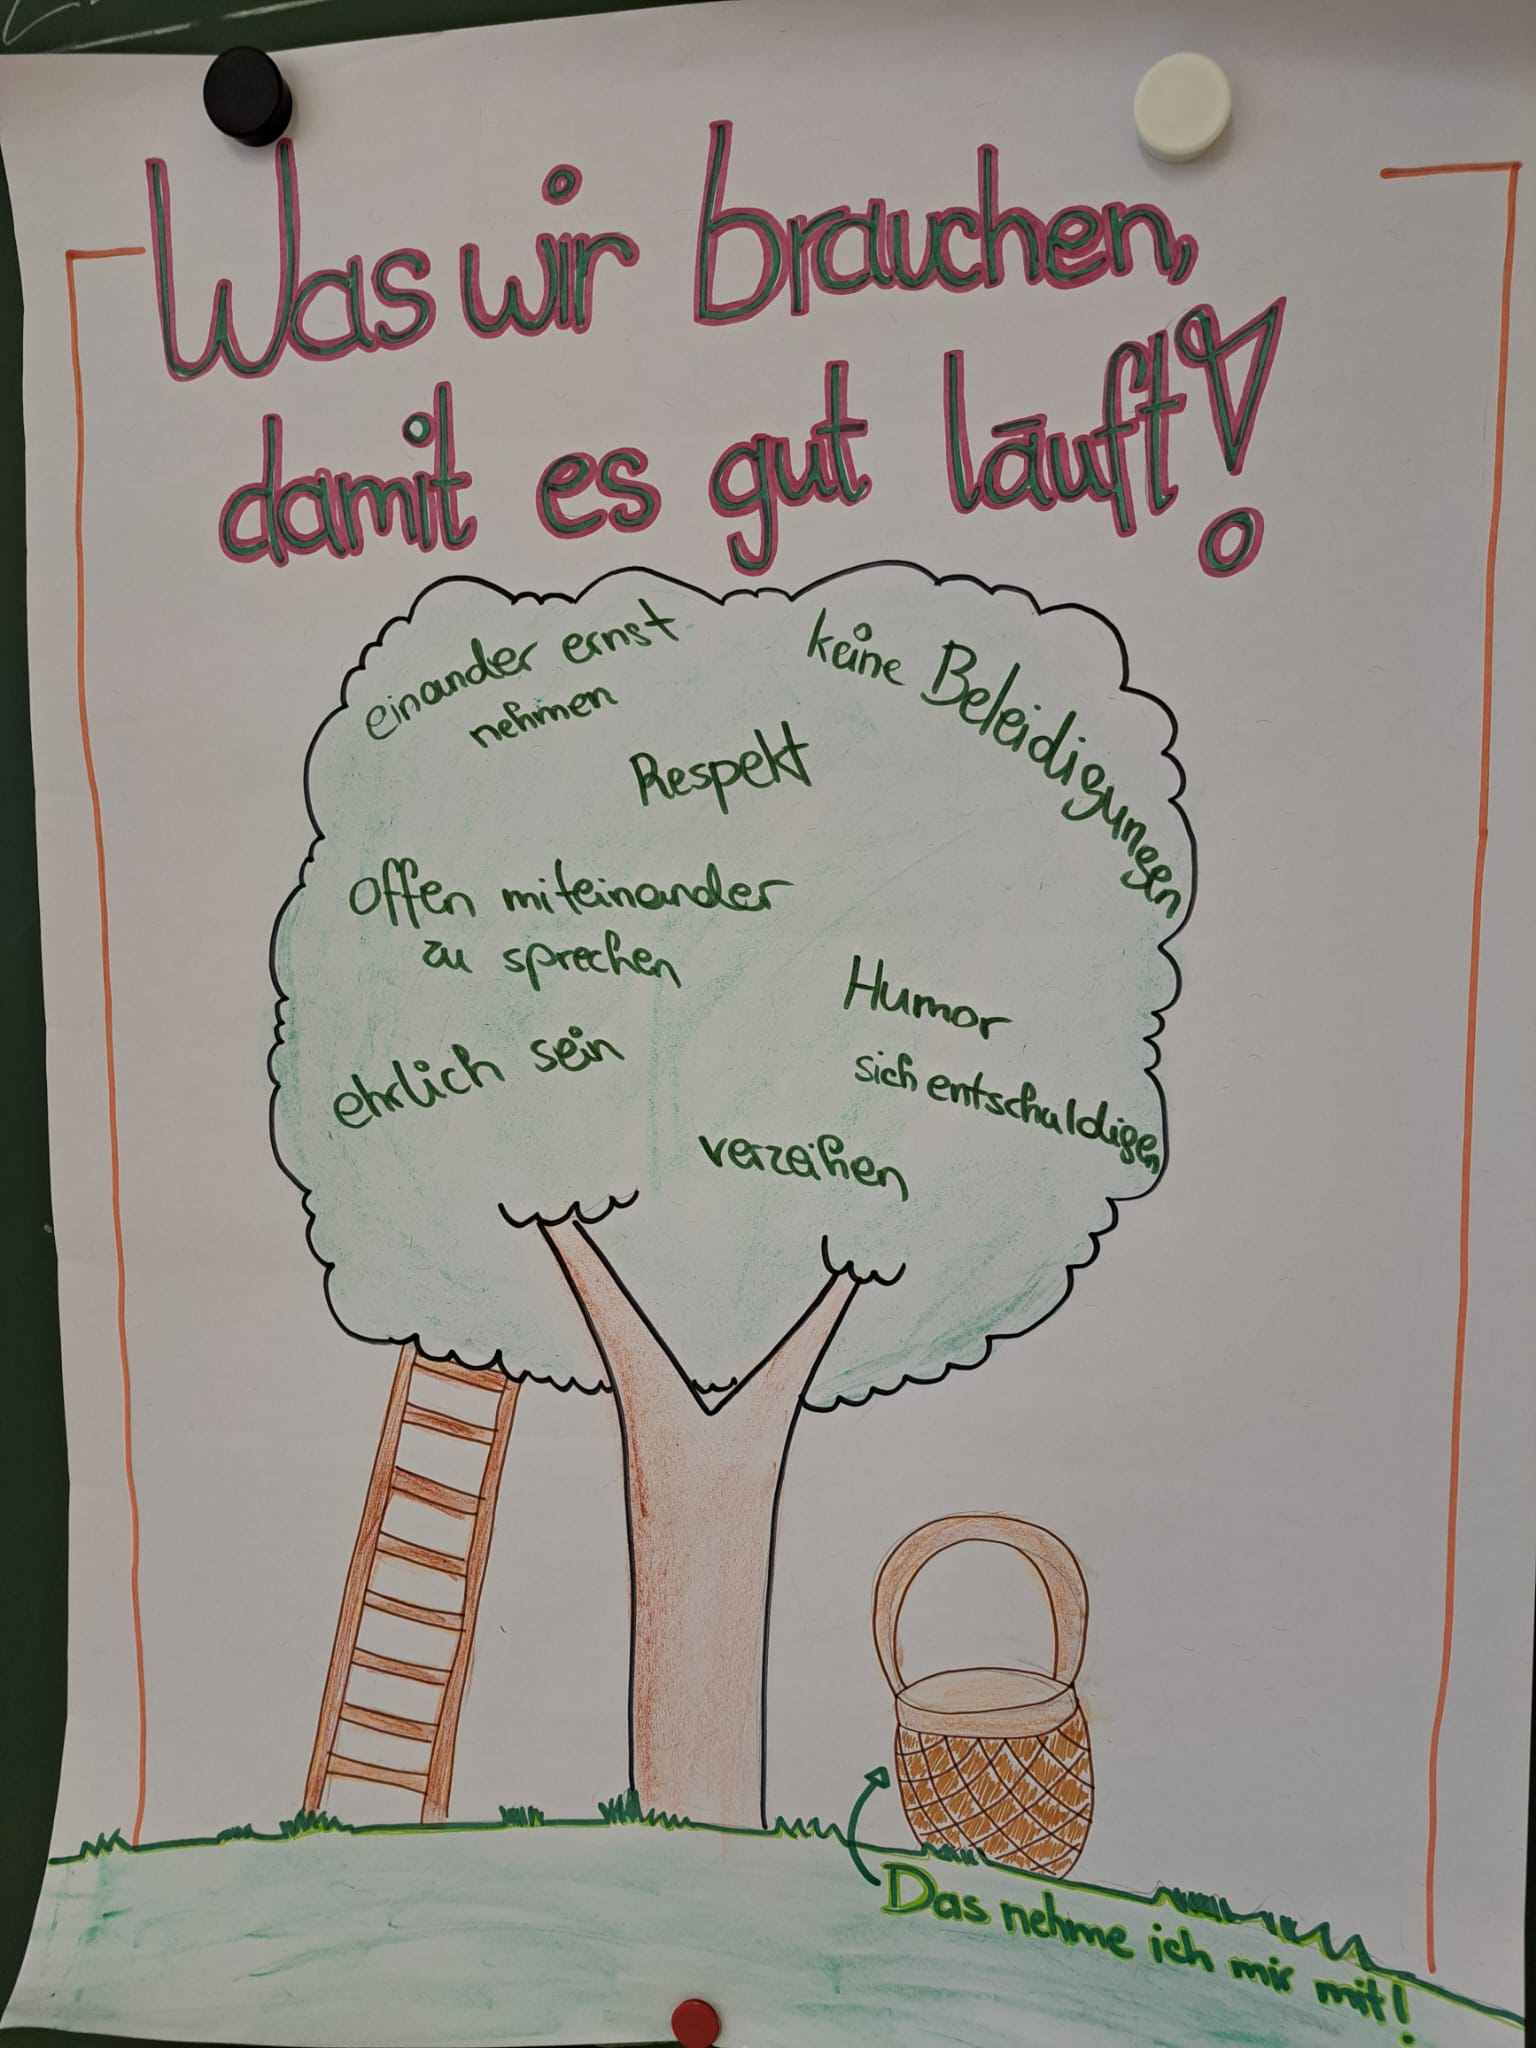 Was wir brauchen,
damit es gut läuft!
einander ernst
nehmen
keine Beleidigungen
Respekt
Offen miteinander
zu sprechen
Humor
ehrlich sein
sich entschuldigen
verzeihen
Das nehme ich mir mit!